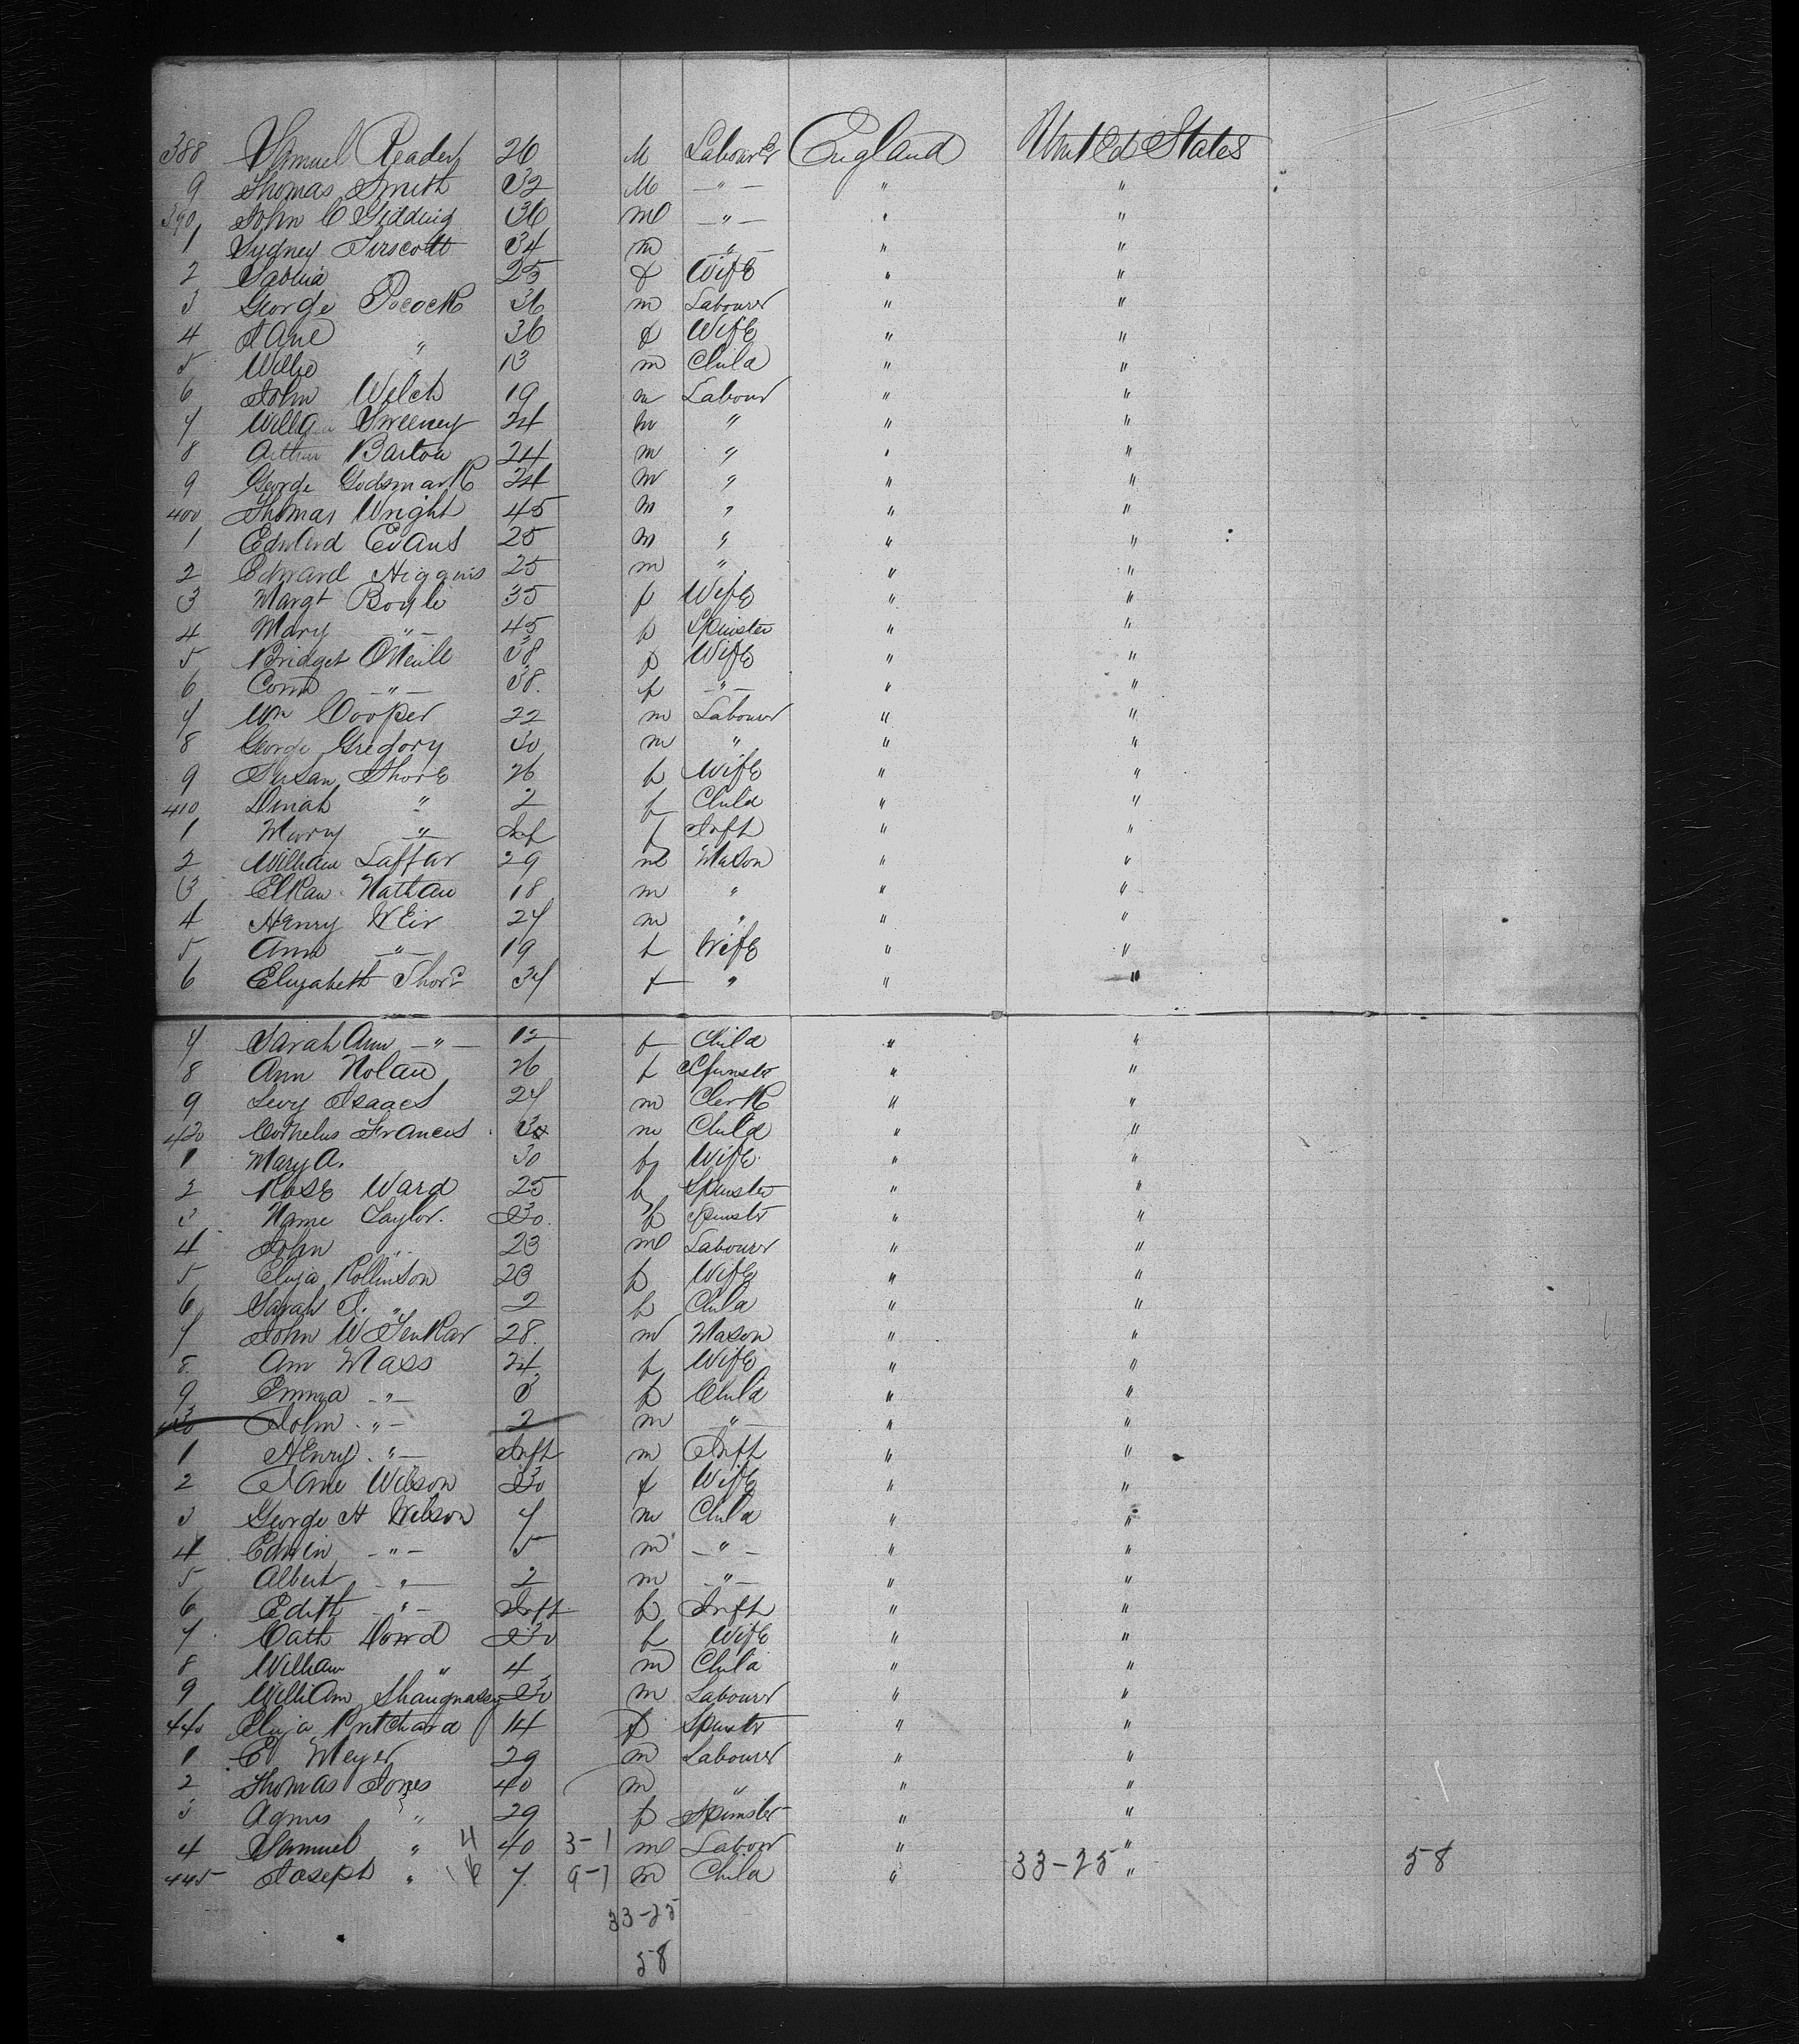 388 Samuel Reader 26 M Labourer England United States
9 Thomas Smith 32 M —"— " "
390 John C Gidding 36 m —"— " "
1 Sydney Tirscott 34 m "— " "
2 25 f Wife " "
3 George Pocock 36 m Labourer " "
4 Jane " 36 f Wife " "
5 Willie " 13 m Child " "
6 John Welch 19 m Labour " "
7 Sweeney 24 m " " "
8 Arthur Barton 24 m " " "
9 George Godsmark 24 m " " "
400 Thomas Wright 45 m " " "
1 Edward Evans 25 m " " "
2 Edward Higgins 25 m " " "
3 Margt Boyle 35 f Wife " "
4 Mary "— 45 f Spinster " "
5 Bridget ONeill 38 f Wife " "
6 —"— 38. f —"— " "
7 Wm Cooper 22 m Labourer " "
8 George Gregory 30 m " " "
9 Susan Shore 26 f Wife " "
410 Dinah " 2 f Child " "
1 Mary —"— Inf f Inft " "
2 William Laffar 29 m Mason " "
3 Elkan Nathan 18 m " " "
4 Henry Weir 27 m " " "
5 Ann —"— 19 f Wife " "
6 Elizabeth Shore 37 f " " "
7 Sarah Ann —"— 12 f Child " "
8 Ann Nolan 26 f Spinster " "
9 Levy Isaacs 27 m Clerk " "
420 Cornelus Frances m Child " "
1 Mary A. 30 f Wife " "
2 Rose Ward 25 f Spinster " "
3 Taylor. 30. f Spinstr " "
4 John " 23 m Labourer " "
5 Eliza Rollinson 23 f Wife " "
6 Sarah J. " 2 f Child " "
7 John W 28. m Mason " "
8 Ann Mass 24 f Wife " "
9 Emma —"— 3 f Child " "
430 John . "— 2 m —"— " "
1 Henry . "— Inft m Inft " "
2 Jane Wilson 30 f Wife " "
3 George H Wilson 7 m Child " "
4 Edwin —"— 5 m —"— " "
5 Albert —"— 2 m —"— " "
6 Edith —"— Inft f Inft " "
7 Cath Dowd 30 f Wife " "
8 William " 4 m Child " "
9 William Shaugnassy 30 m Labourer " "
440 Eliza Pritchard 14 f Spinstr " "
1 Meyer 29 m Labourer " "
2 Thomas Jones 40 m " " "
3 Agnes " 29 f Spinster " "
4 Samuel " 4 40 3-1 m Labour " "
445 Joseph " 7. 9-7 m Child " 33-25 " 58
33-25
58